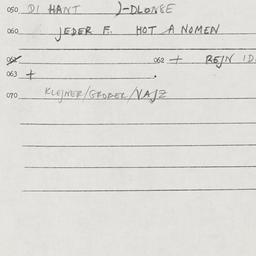 050 DI HANT )-DLONIE
060 JEDER F. HOT A NOMEN
062 062 + REJN ID
063 + .
070 KLEJNER/GROBER/VAJZ